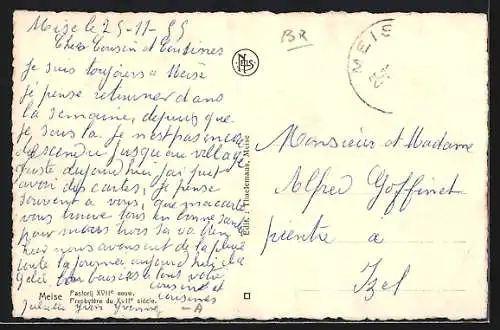 Meise le 25-11-55
Chers Cousin et Cousines
Je suis toujours a Meise
Je pense retourner dans
la semaine, depuis que
je suis la. Je n'est pas encore
descendu jusquau village
juste aujourd'hui j'ai juste
avoir des cartes, je pense
souvent a vous, que ma carte
vous trouve tous en bonne santé
pour nous tous sa va bien
hier nous avons eut de la pluie
toute la journer aujourd'hui il a
Gelé bon baisers a tous votre
cousine et
cousines
Juliette Yvonne
Meise Pastorij XVIIe eeuw.
Presbytère du XVIIe siècle.
Edit.: Thielemans, Meise
NELS
BR
MEISE
Monsieur et Madame
Alfred Goffinet
peintre a
Izel